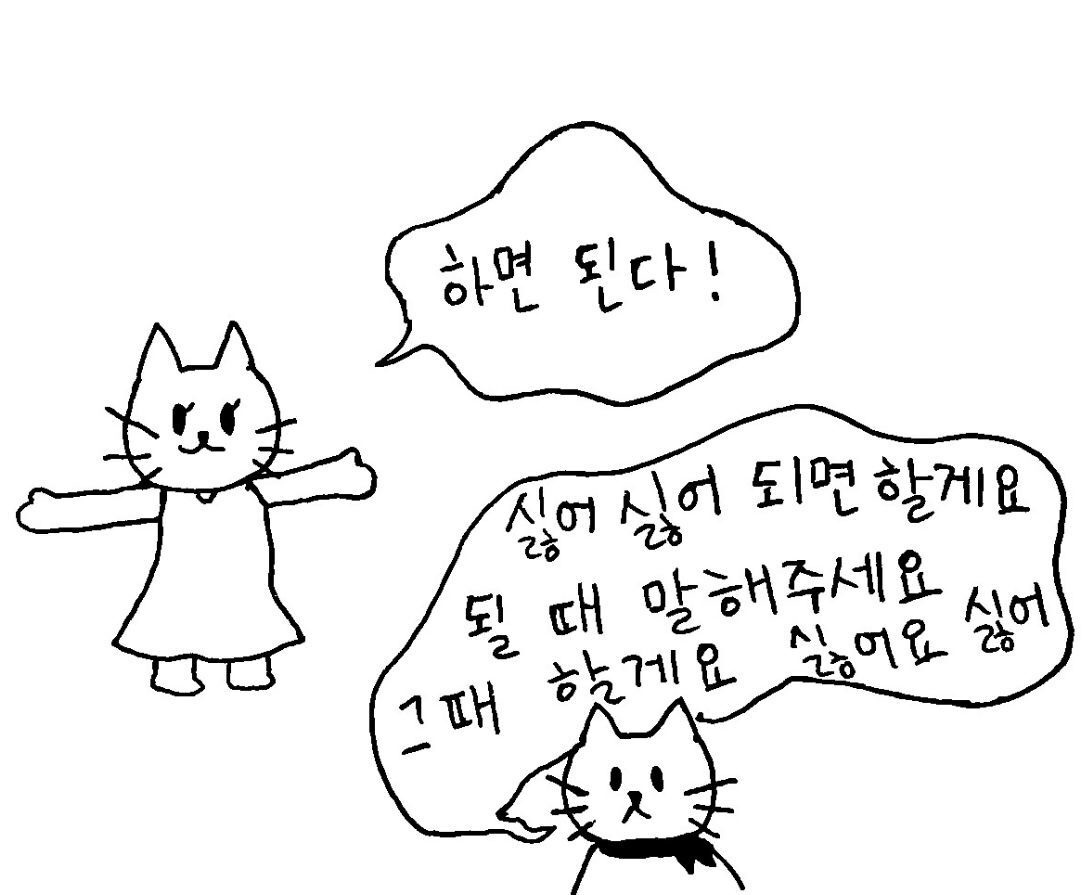 하면 된다!
싫어 싫어 되면 할게요
될 때 말해주세요
그때 할게요 싫어요 싫어